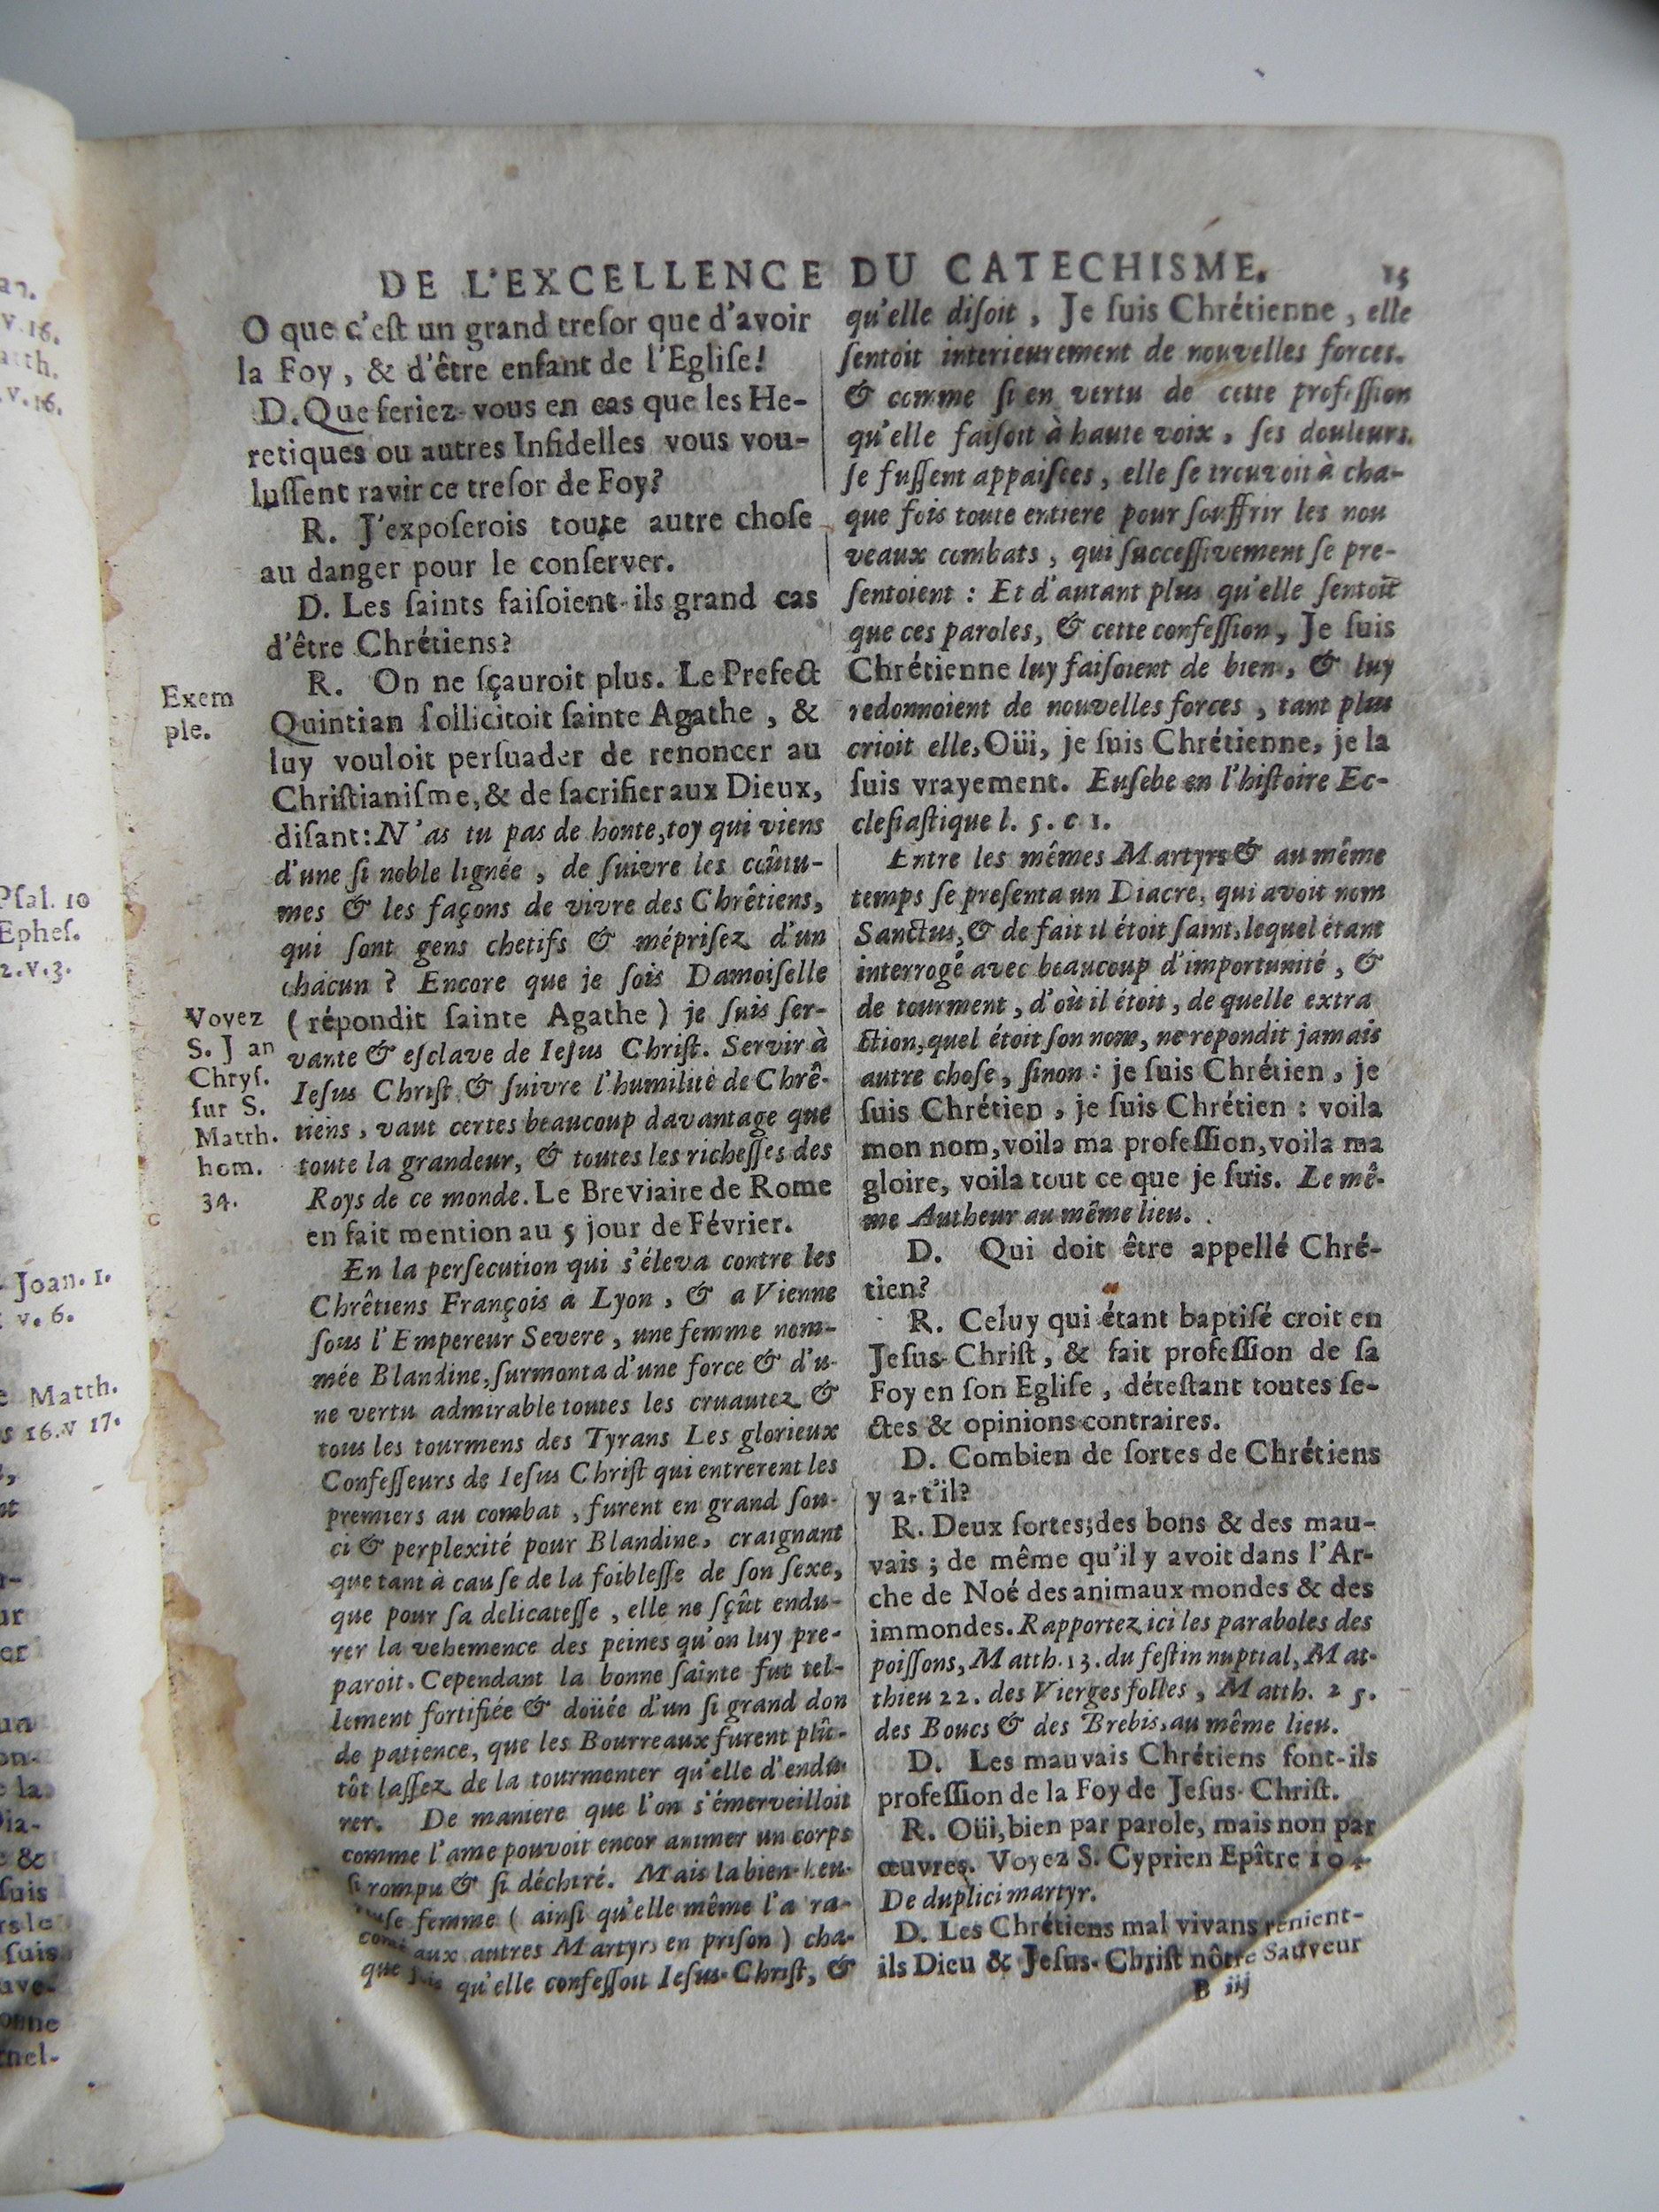 DE L'EXCELLENCE DU CATECHISME. 15
O que c'eſt un grand treſor que d'avoir
la Foy, & d'être enfant de l'Egliſe!
D. Que feriez-vous en cas que les He-
retiques ou autres Infidelles vous vou-
luſſent ravir ce treſor de Foy?
R. J'expoſerois toute autre choſe
au danger pour le conſerver.
D. Les ſaints faiſoient-ils grand cas
d'être Chrétiens?
R. On ne ſçauroit plus. Le Prefect
Quintian ſollicitoit ſainte Agathe, &
luy vouloit perſuader de renoncer au
Chriſtianiſme, & de ſacrifier aux Dieux,
diſant: N'as tu pas de honte, toy qui viens
d'une ſi noble lignée, de ſuivre les coûtu-
mes & les façons de vivre des Chrêtiens,
qui ſont gens chetifs & mépriſez d'un
chacun? Encore que je ſois Damoiſelle
(répondit ſainte Agathe) je ſuis ſer-
vante & eſclave de Ieſus Chriſt. Servir à
Ieſus Chriſt & ſuivre l'humilité de Chrê-
tiens, vaut certes beaucoup davantage que
toute la grandeur, & toutes les richeſſes des
Roys de ce monde. Le Breviaire de Rome
en fait mention au 5 jour de Février.
En la perſecution qui s'éleva contre les
Chrêtiens François a Lyon, & a Vienne
ſous l'Empereur Severe, une femme nom-
mée Blandine, ſurmonta d'une force & d'u-
ne vertu admirable toutes les cruautez &
tous les tourmens des Tyrans Les glorieux
Confeſſeurs de Ieſus Chriſt qui entrerent les
premiers au combat, furent en grand ſou-
ci & perplexité pour Blandine, craignant
que tant à cauſe de la foibleſſe de ſon ſexe,
que pour ſa delicateſſe, elle ne ſçût endu-
rer la vehemence des peines qu'on luy pre-
paroit. Cependant la bonne ſainte fut tel-
lement fortifiée & doüée d'un ſi grand don
de patience, que les Bourreaux furent plû-
tôt laſſez de la tourmenter qu'elle d'endu-
rer. De maniere que l'on s'émerveilloit
comme l'ame pouvoit encor animer un corps
ſi rompu & ſi déchiré. Mais la bien-heu-
femme (ainſi qu'elle même l'a ra-
aux autres Martyrs en priſon) cha-
que fois qu'elle confeſſoit Ieſus-Chriſt, &
Exem
ple.
Voyez
S. J an
Chryſ.
ſur S.
Matth.
hom.
34.
qu'elle diſoit, Je ſuis Chrétienne, elle
ſentoit interieurement de nouvelles forces.
& comme ſi en vertu de cette profeſſion
qu'elle faiſoit à haute voix, ſes douleurs.
ſe fuſſent appaiſées, elle ſe trouvoit à cha-
que fois toute entiere pour ſouffrir les nou
veaux combats, qui ſucceſſivement ſe pre-
ſentoient: Et d'autant plus qu'elle ſentoit
que ces paroles, & cette confeſſion, Je ſuis
Chrétienne luy faiſoient de bien, & luy
redonnoient de nouvelles forces, tant plus
crioit elle, Oüi, je ſuis Chrétienne, je la
ſuis vrayement. Euſebe en l'hiſtoire Ec-
cleſiaſtique l. 5. c 1.
Entre les mêmes Martyrs & au même
temps ſe preſenta un Diacre, qui avoit nom
Sanctus, & de fait il étoit ſaint, lequel étant
interrogé avec beaucoup d'importunité, &
de tourment, d'où il étoit, de quelle extra
ction, quel étoit ſon nom, ne repondit jamais
autre choſe, ſinon: je ſuis Chrétien, je
ſuis Chrétien, je ſuis Chrétien: voila
mon nom, voila ma profeſſion, voila ma
gloire, voila tout ce que je ſuis. Le mê-
me Autheur au même lieu.
D. Qui doit être appellé Chré-
tien?
R. Celuy qui étant baptiſé croit en
Jeſus-Chriſt, & fait profeſſion de ſa
Foy en ſon Egliſe, déteſtant toutes ſe-
ctes & opinions contraires.
D. Combien de ſortes de Chrétiens
y a-t'il?
R. Deux ſortes; des bons & des mau-
vais; de même qu'il y avoit dans l'Ar-
che de Noé des animaux mondes & des
immondes. Rapportez ici les paraboles des
poiſſons, Matth. 13. du feſtin nuptial, Mat-
thieu 22. des Vierges folles, Matth. 25.
des Boucs & des Brebis, au même lieu.
D. Les mauvais Chrétiens font-ils
profeſſion de la Foy de Jeſus-Chriſt.
R. Oüi, bien par parole, mais non par
œuvres. Voyez S. Cyprien Epître 104.
De duplici martyr.
D. Les Chrétiens mal vivans renient-
ils Dieu & Jeſus-Chriſt nôtre Sauveur
B iij
v. 16.
v. 16.
Pſal. 10
Epheſ.
2. v. 3.
Joan. 1.
v. 6.
Matth.
16. v 17.